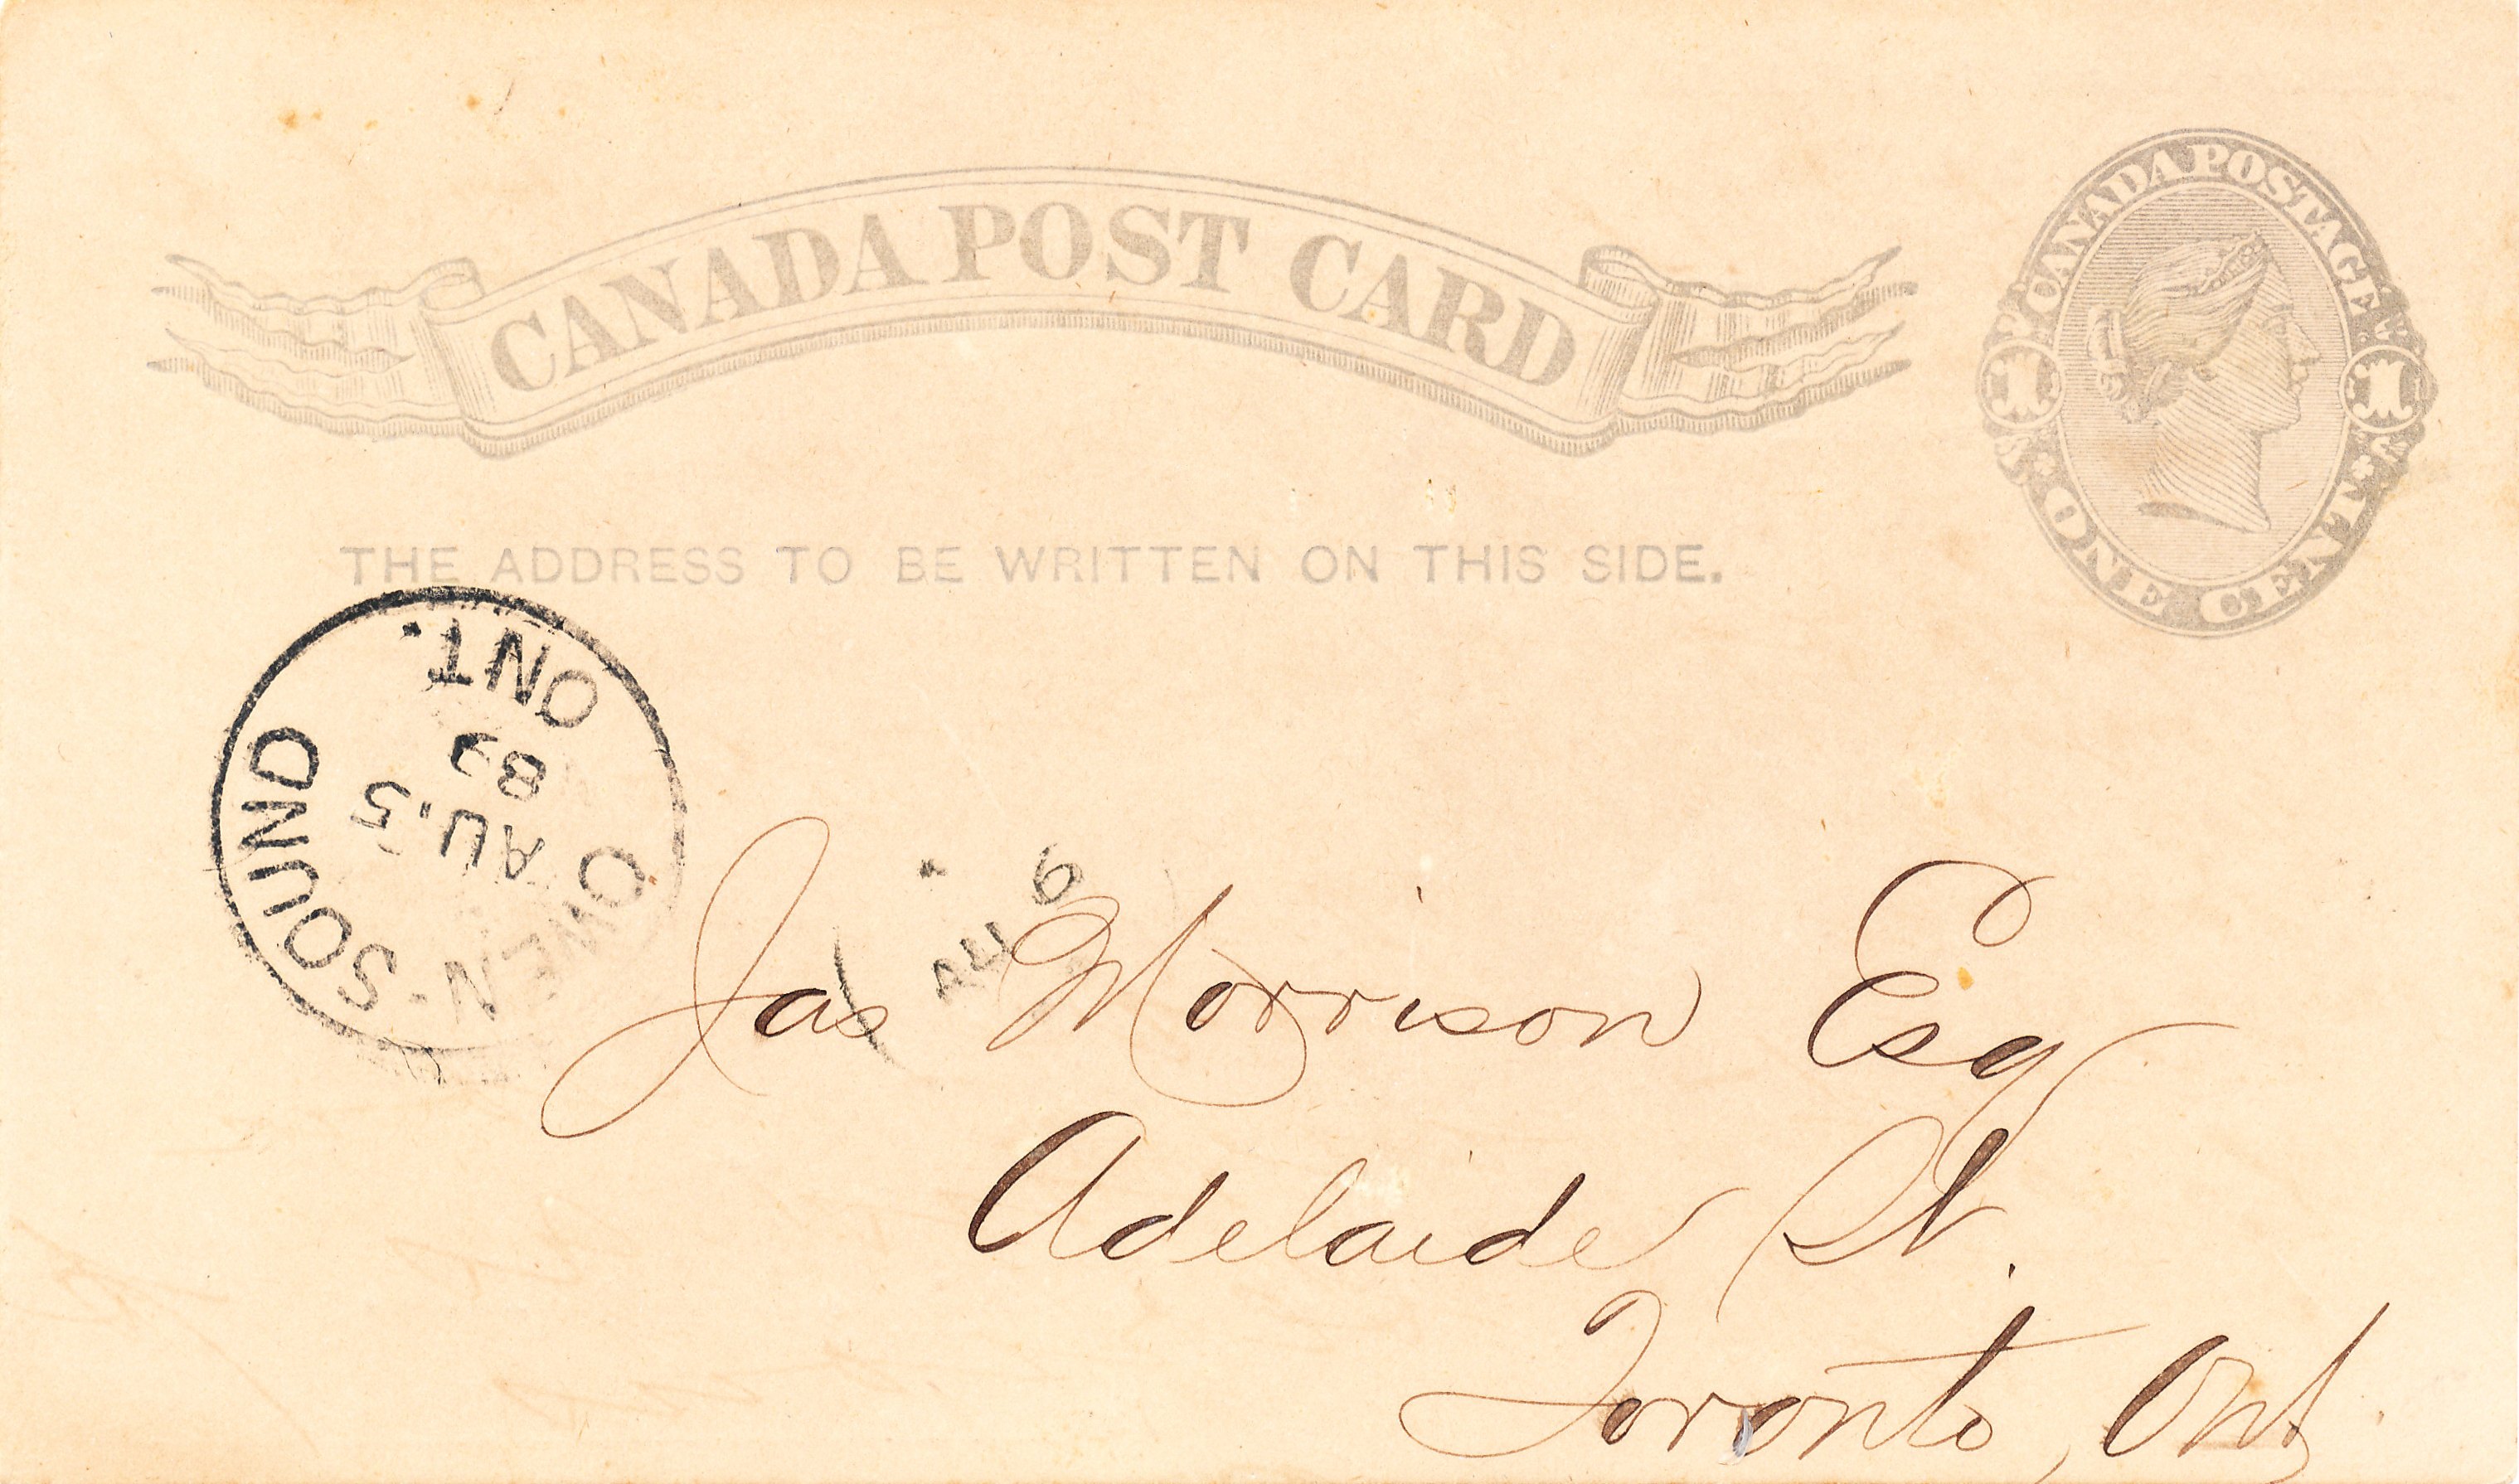 CANADA POST CARD
CANADA POSTAGE
1 1
ONE CENT
THE ADDRESS TO BE WRITTEN ON THIS SIDE.
OWEN SOUND
AU. 5
89
ONT.
AU 6
Jas Morrison Esq
Adelaide St.
Toronto, Ont